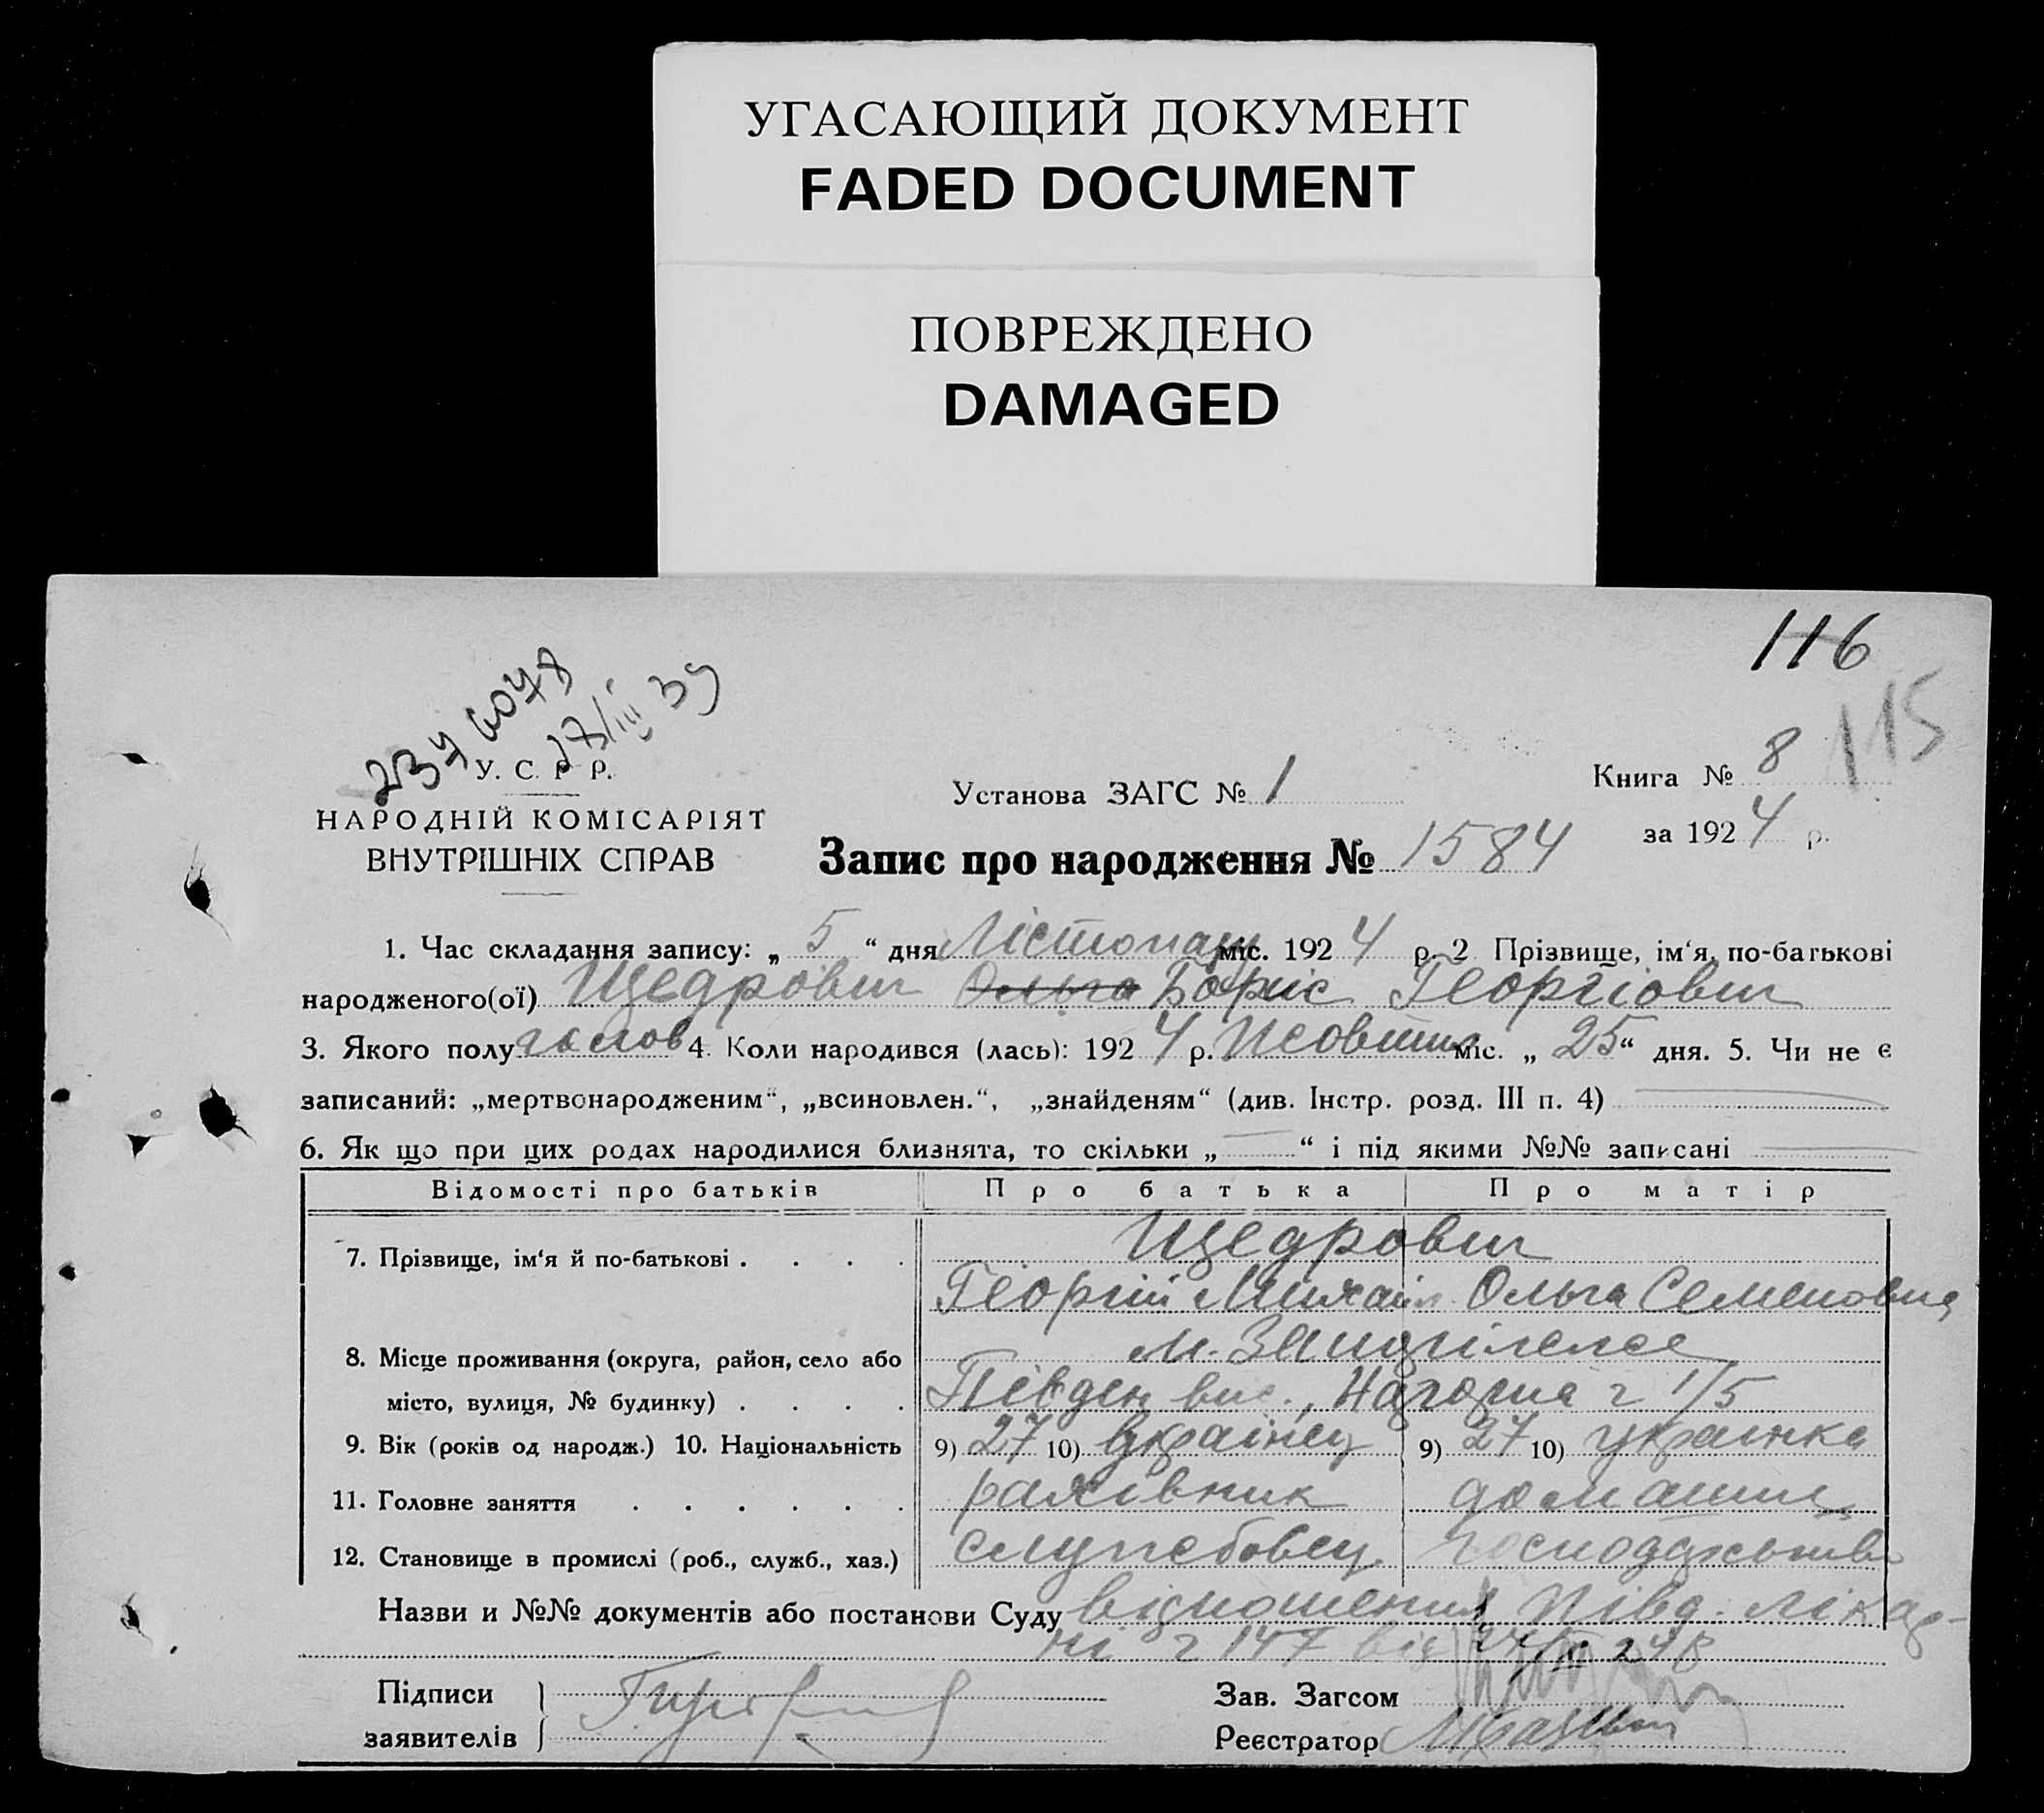 УГАСАЮЩИЙ ДОКУМЕНТ
FADED DOCUMENT
ПОВРЕЖДЕНО
DAMAGED
116
115
27/III 39
У. С. Р Р.
НАРОДНІЙ КОМІСАРІЯТ
ВНУТРІШНІХ СПРАВ
Установа ЗАГС № 1
Книга № 8
за 1924 р.
Запис про народження № 1584
1. Час складання запису: „ 5 “ дня Лістопад міс. 1924 р. 2 Прізвище, ім‘я, по-батькові
народженого(ої) Щедровіч Ольга Боріс Георгіовіч
3. Якого полу 4. Коли народився (лась): 1924 р. Жовтня міс. „ 25 “ дня. 5. Чи не є
записаний: „мертвонародженим“, „всиновлен.“, „знайденям“ (див. Інстр. розд. III п. 4)
6. Як що при цих родах народилися близнята, то скільки „ “ і під якими №№ записані
Відомості про батьків Про батька Про матір
7. Прізвище, ім‘я й по-батькові . . . . Щедровіч
Георгій Михайл. Ольга Семеновна
8. Місце проживання (округа, район, село або м.
місто, вулиця, № будинку) . . . . Південь вис., Нагорна ч 1/5
9. Вік (років од народж.) 10. Національність 9) 27 10) Українец 9) 27 10) українка
11. Головне заняття . . . . . . рахівник домашнє
12. Становище в промислі (роб., служб., хаз.) службовец господарьство
Назви и №№ документів або постанови Суду відношення Півд. лікар-
ні ч 147 від
Підписи
заявителів
Зав. Загсом
Реєстратор